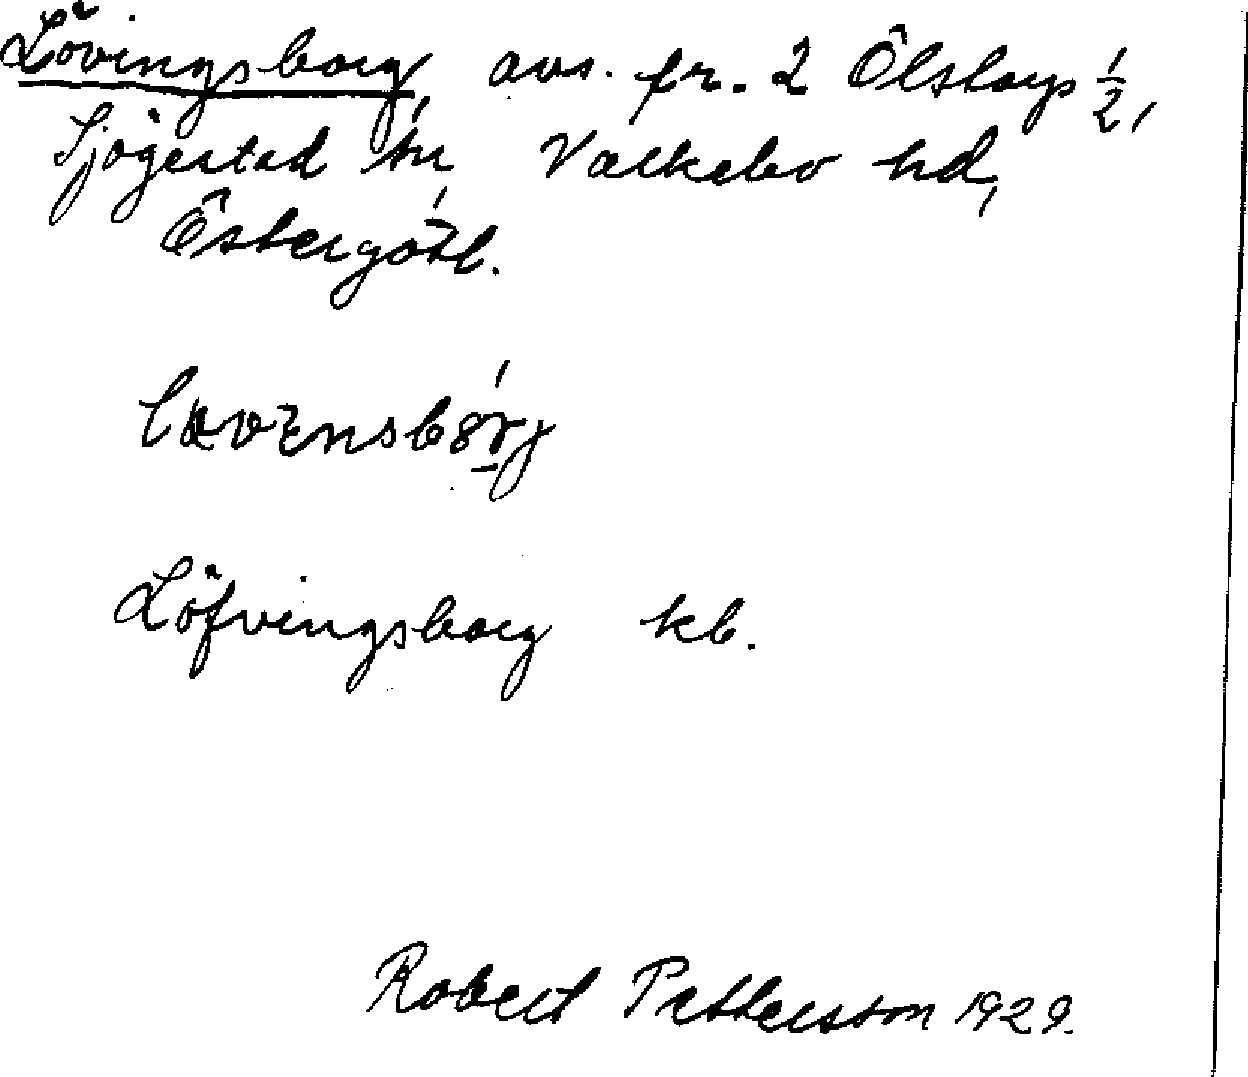 Lövingsborg avs. fr. 2 Ölstorp 1/2,
Sjögestad sn, Valkebo hd,
Östergötl.
Löfvingsborg kb.
Robert Pettersson 1929.